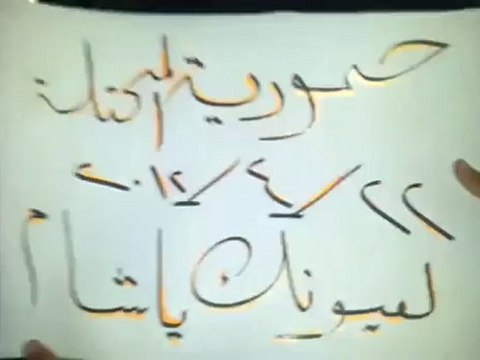 سورية المحتلة
٢٢/٤/٢٠١٢
لعيونك ياشام